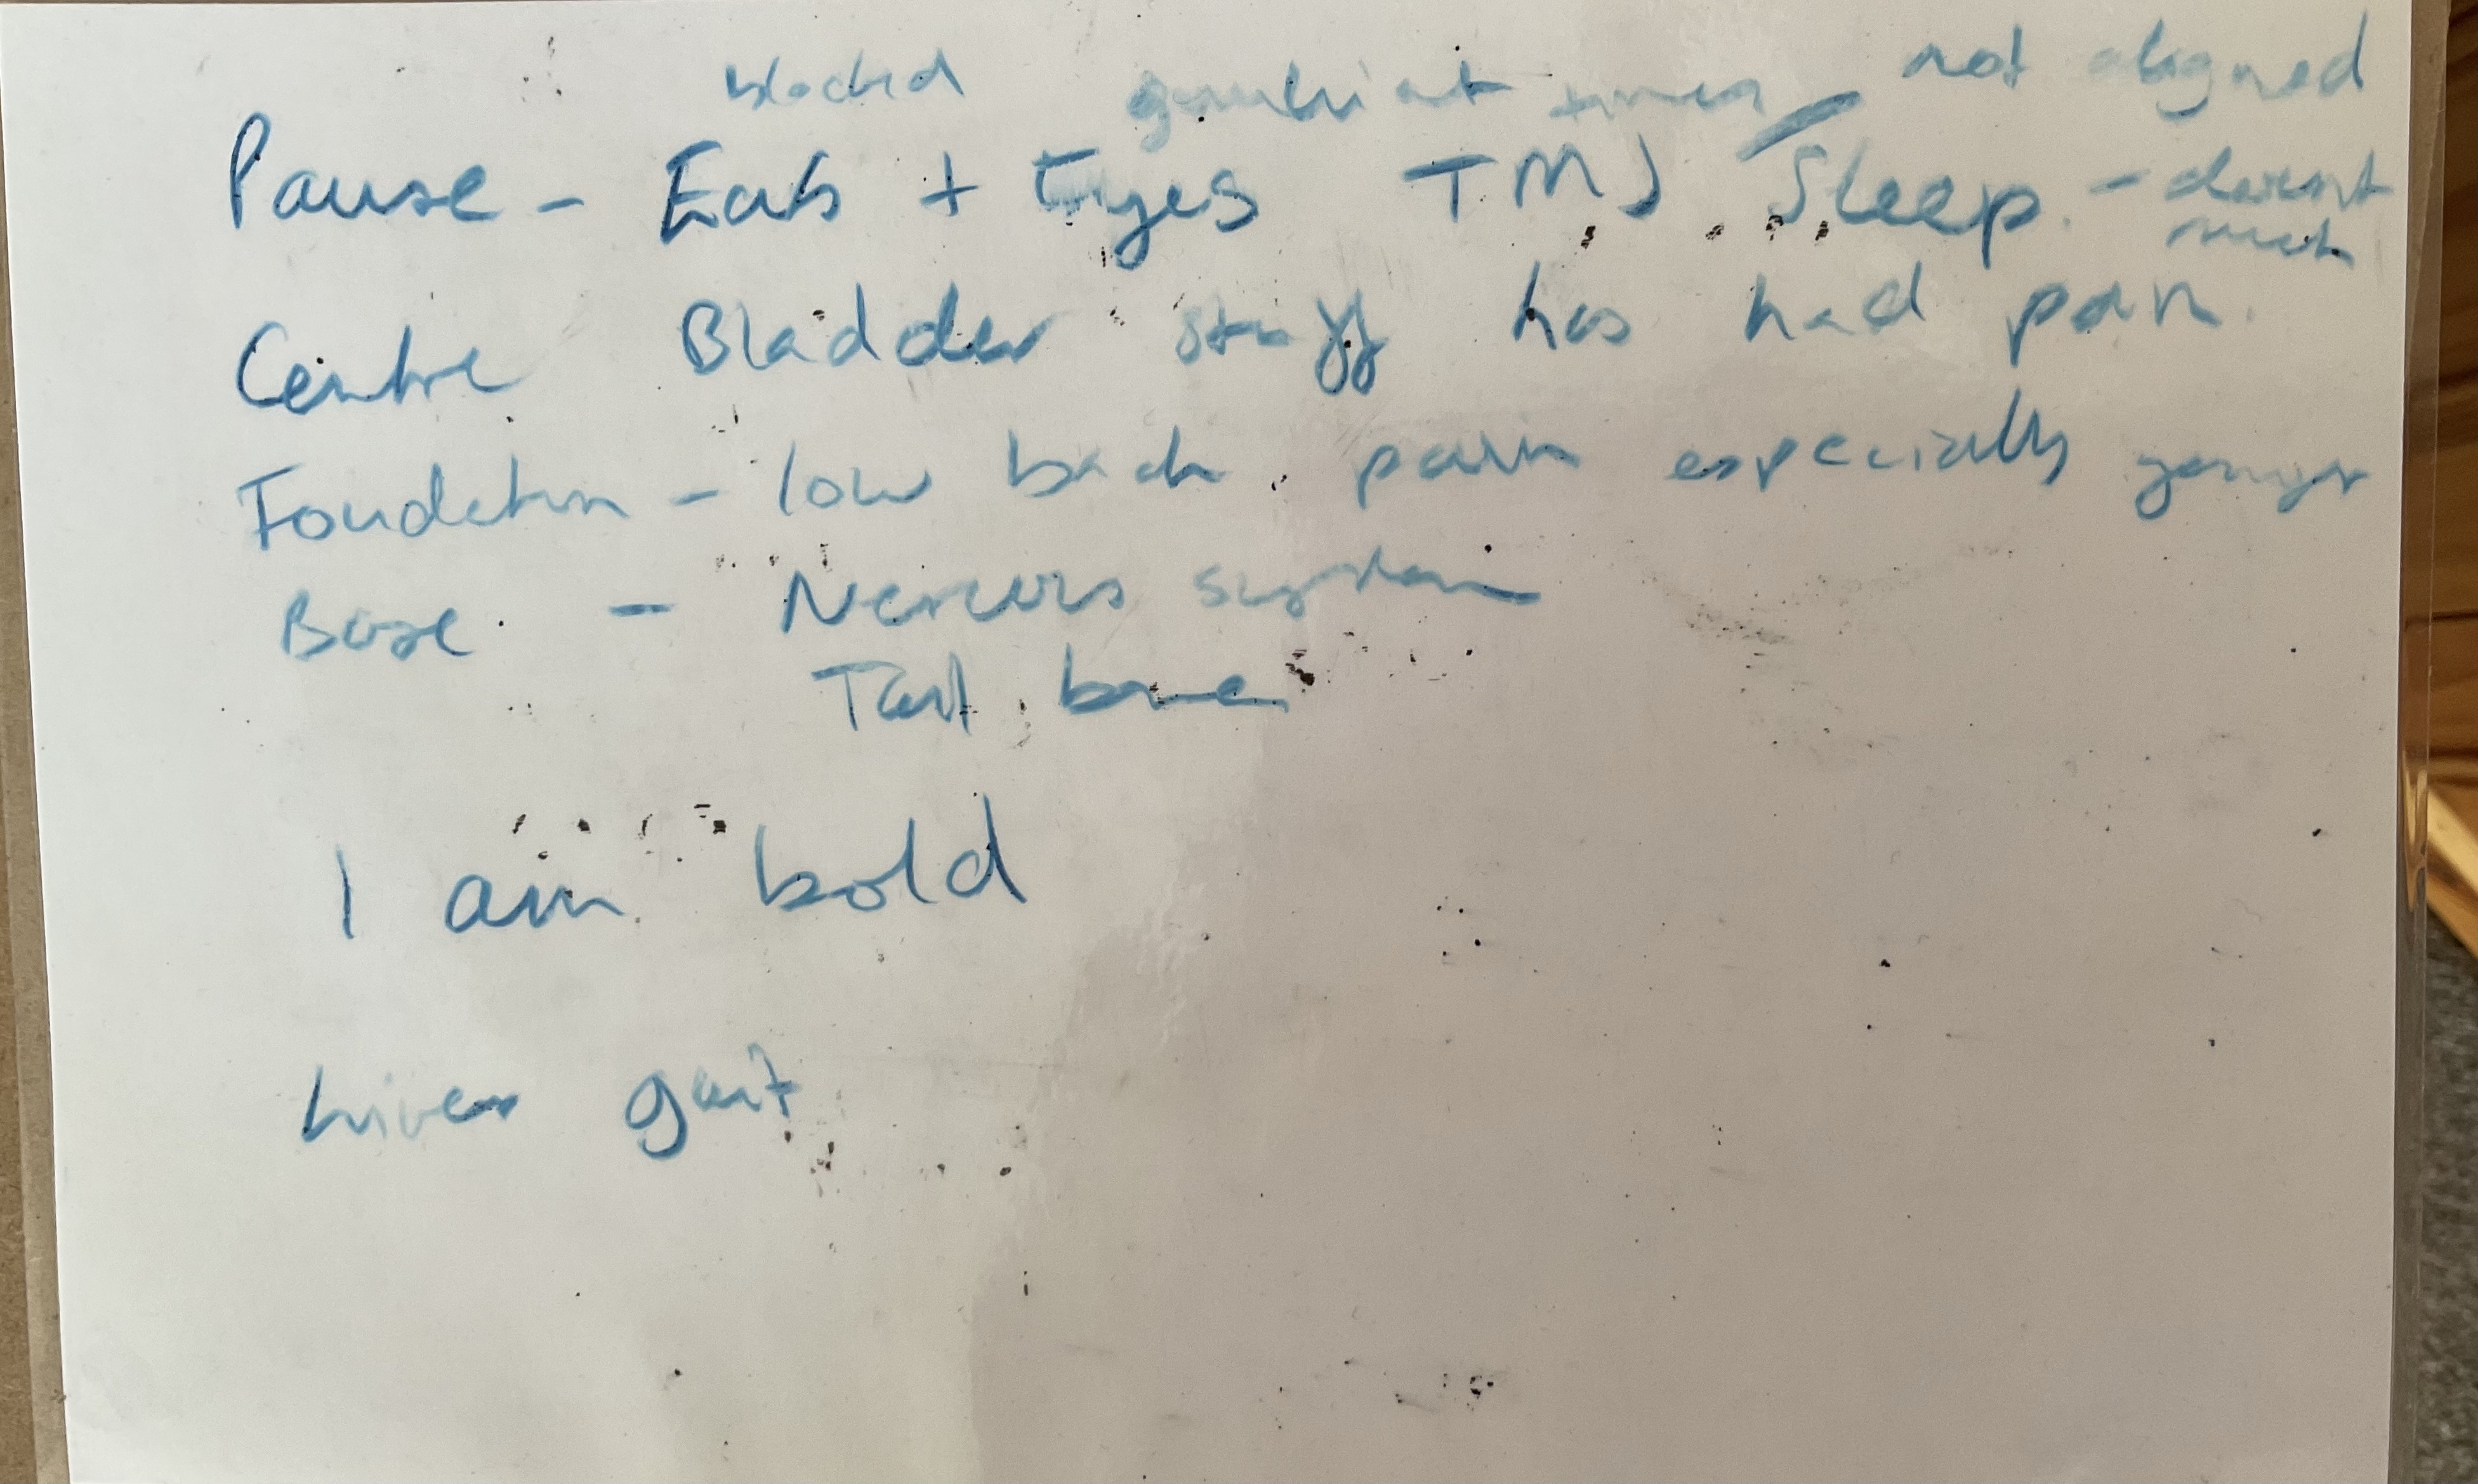 blocked not aligned
Pause - Ears + Eyes TMJ / Sleep. - doesnt
Centre Bladder stuff has had pain.
Foundation - low back pain especially younger
Base - Nervous system
Tail bone
I am bold
Liver gait